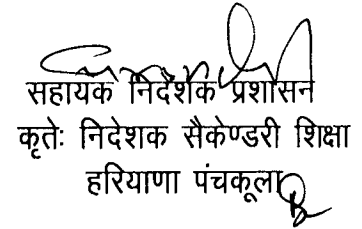 सहायक निदेशक प्रशासन
कृतेः निदेशक सैकेण्डरी शिक्षा
हरियाणा पंचकूला